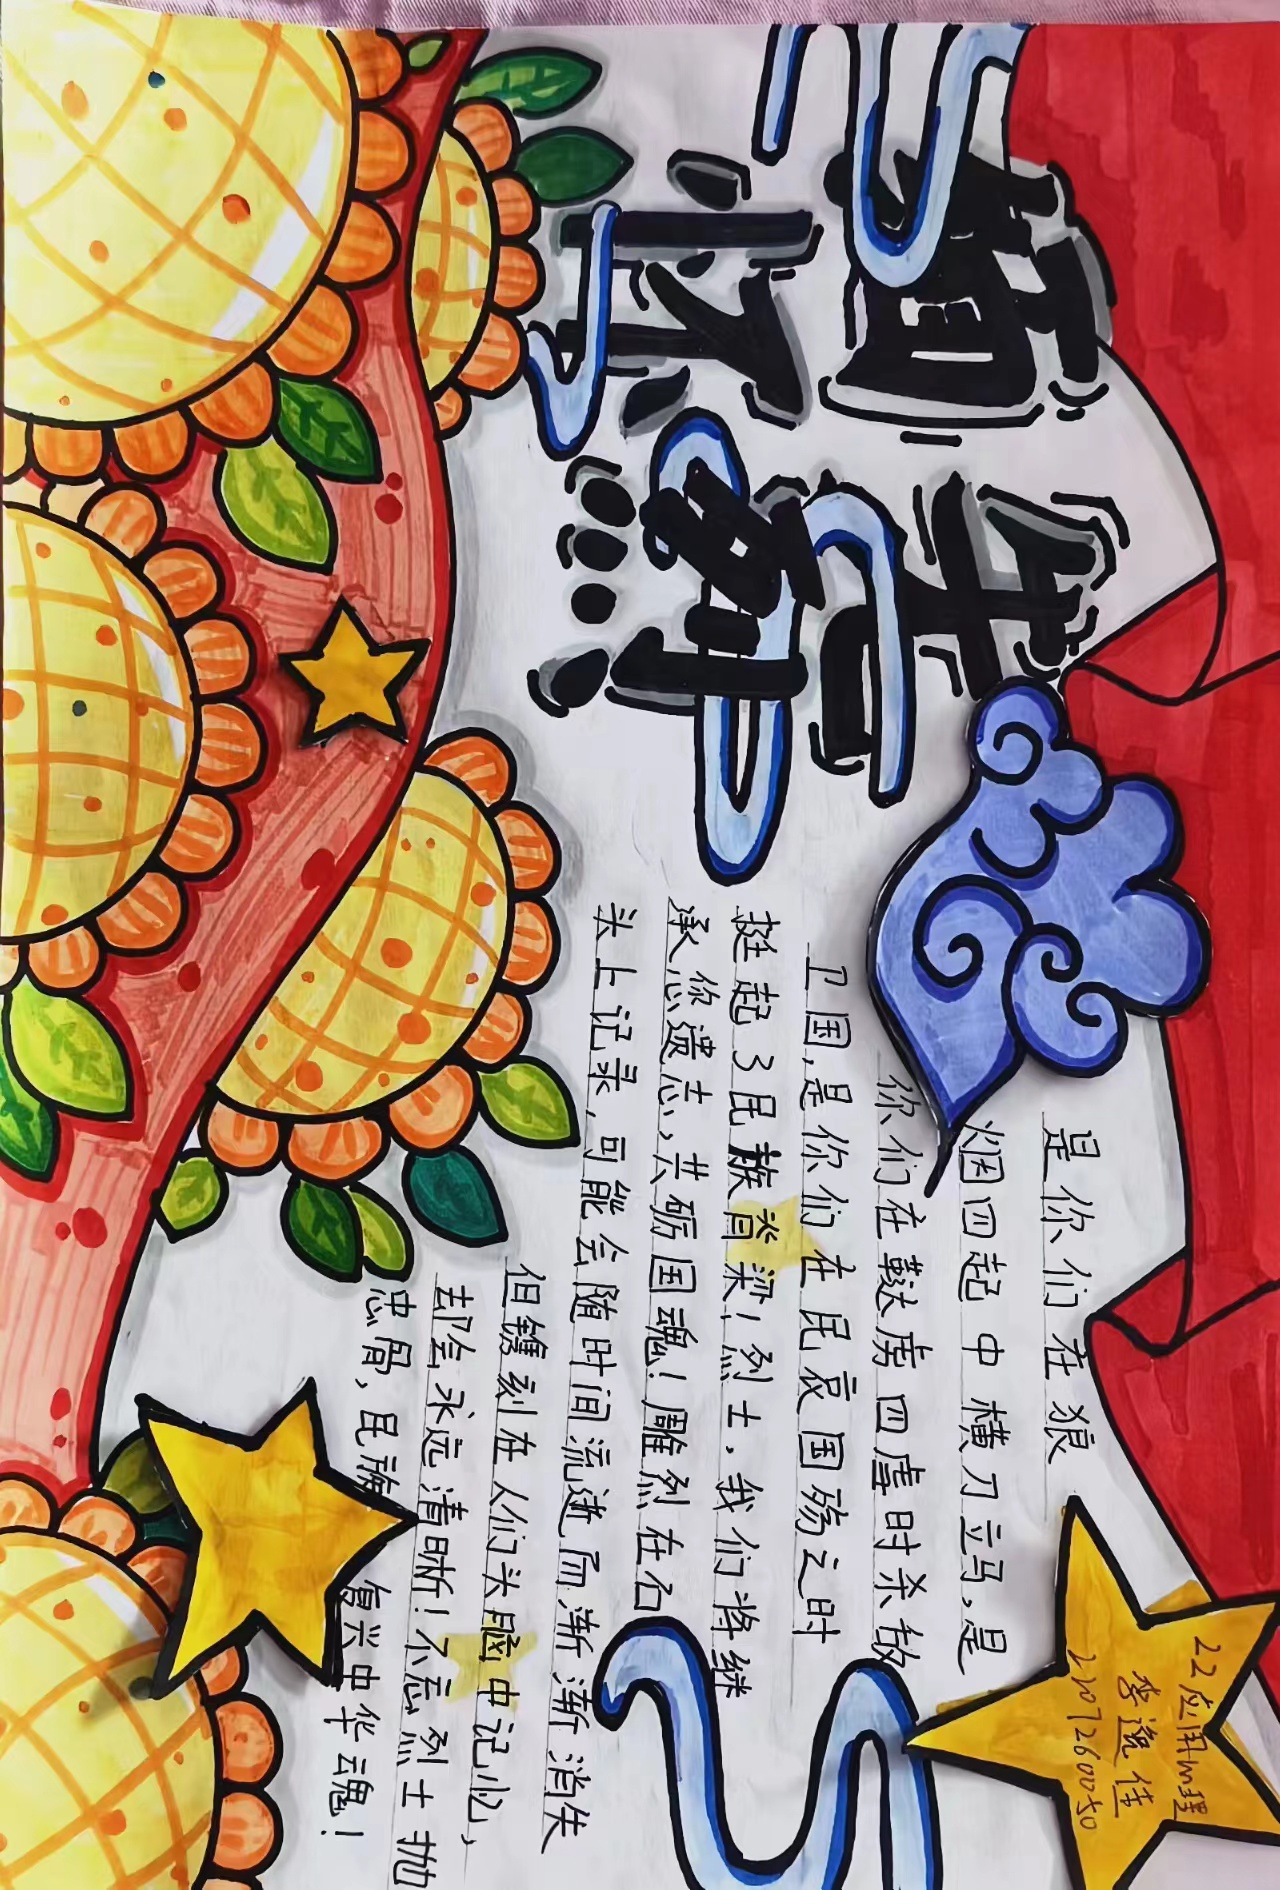 缅怀先烈
是你们在狼
烟四起中横刀立马,是
你们在鞑虏四虐时杀敌
卫国,是你们在民哀国殇之时
挺起了民族脊梁!烈士,我们将继
承您遗志,共砺国魂!雕烈在石
头上记录,可能会随时间流逝而渐渐消失
但镌刻在人们头脑中记忆,
却会永远清晰!不忘烈士抛
忠骨,民族复兴中华魂!
22应用心理
李逸佳
2207260050